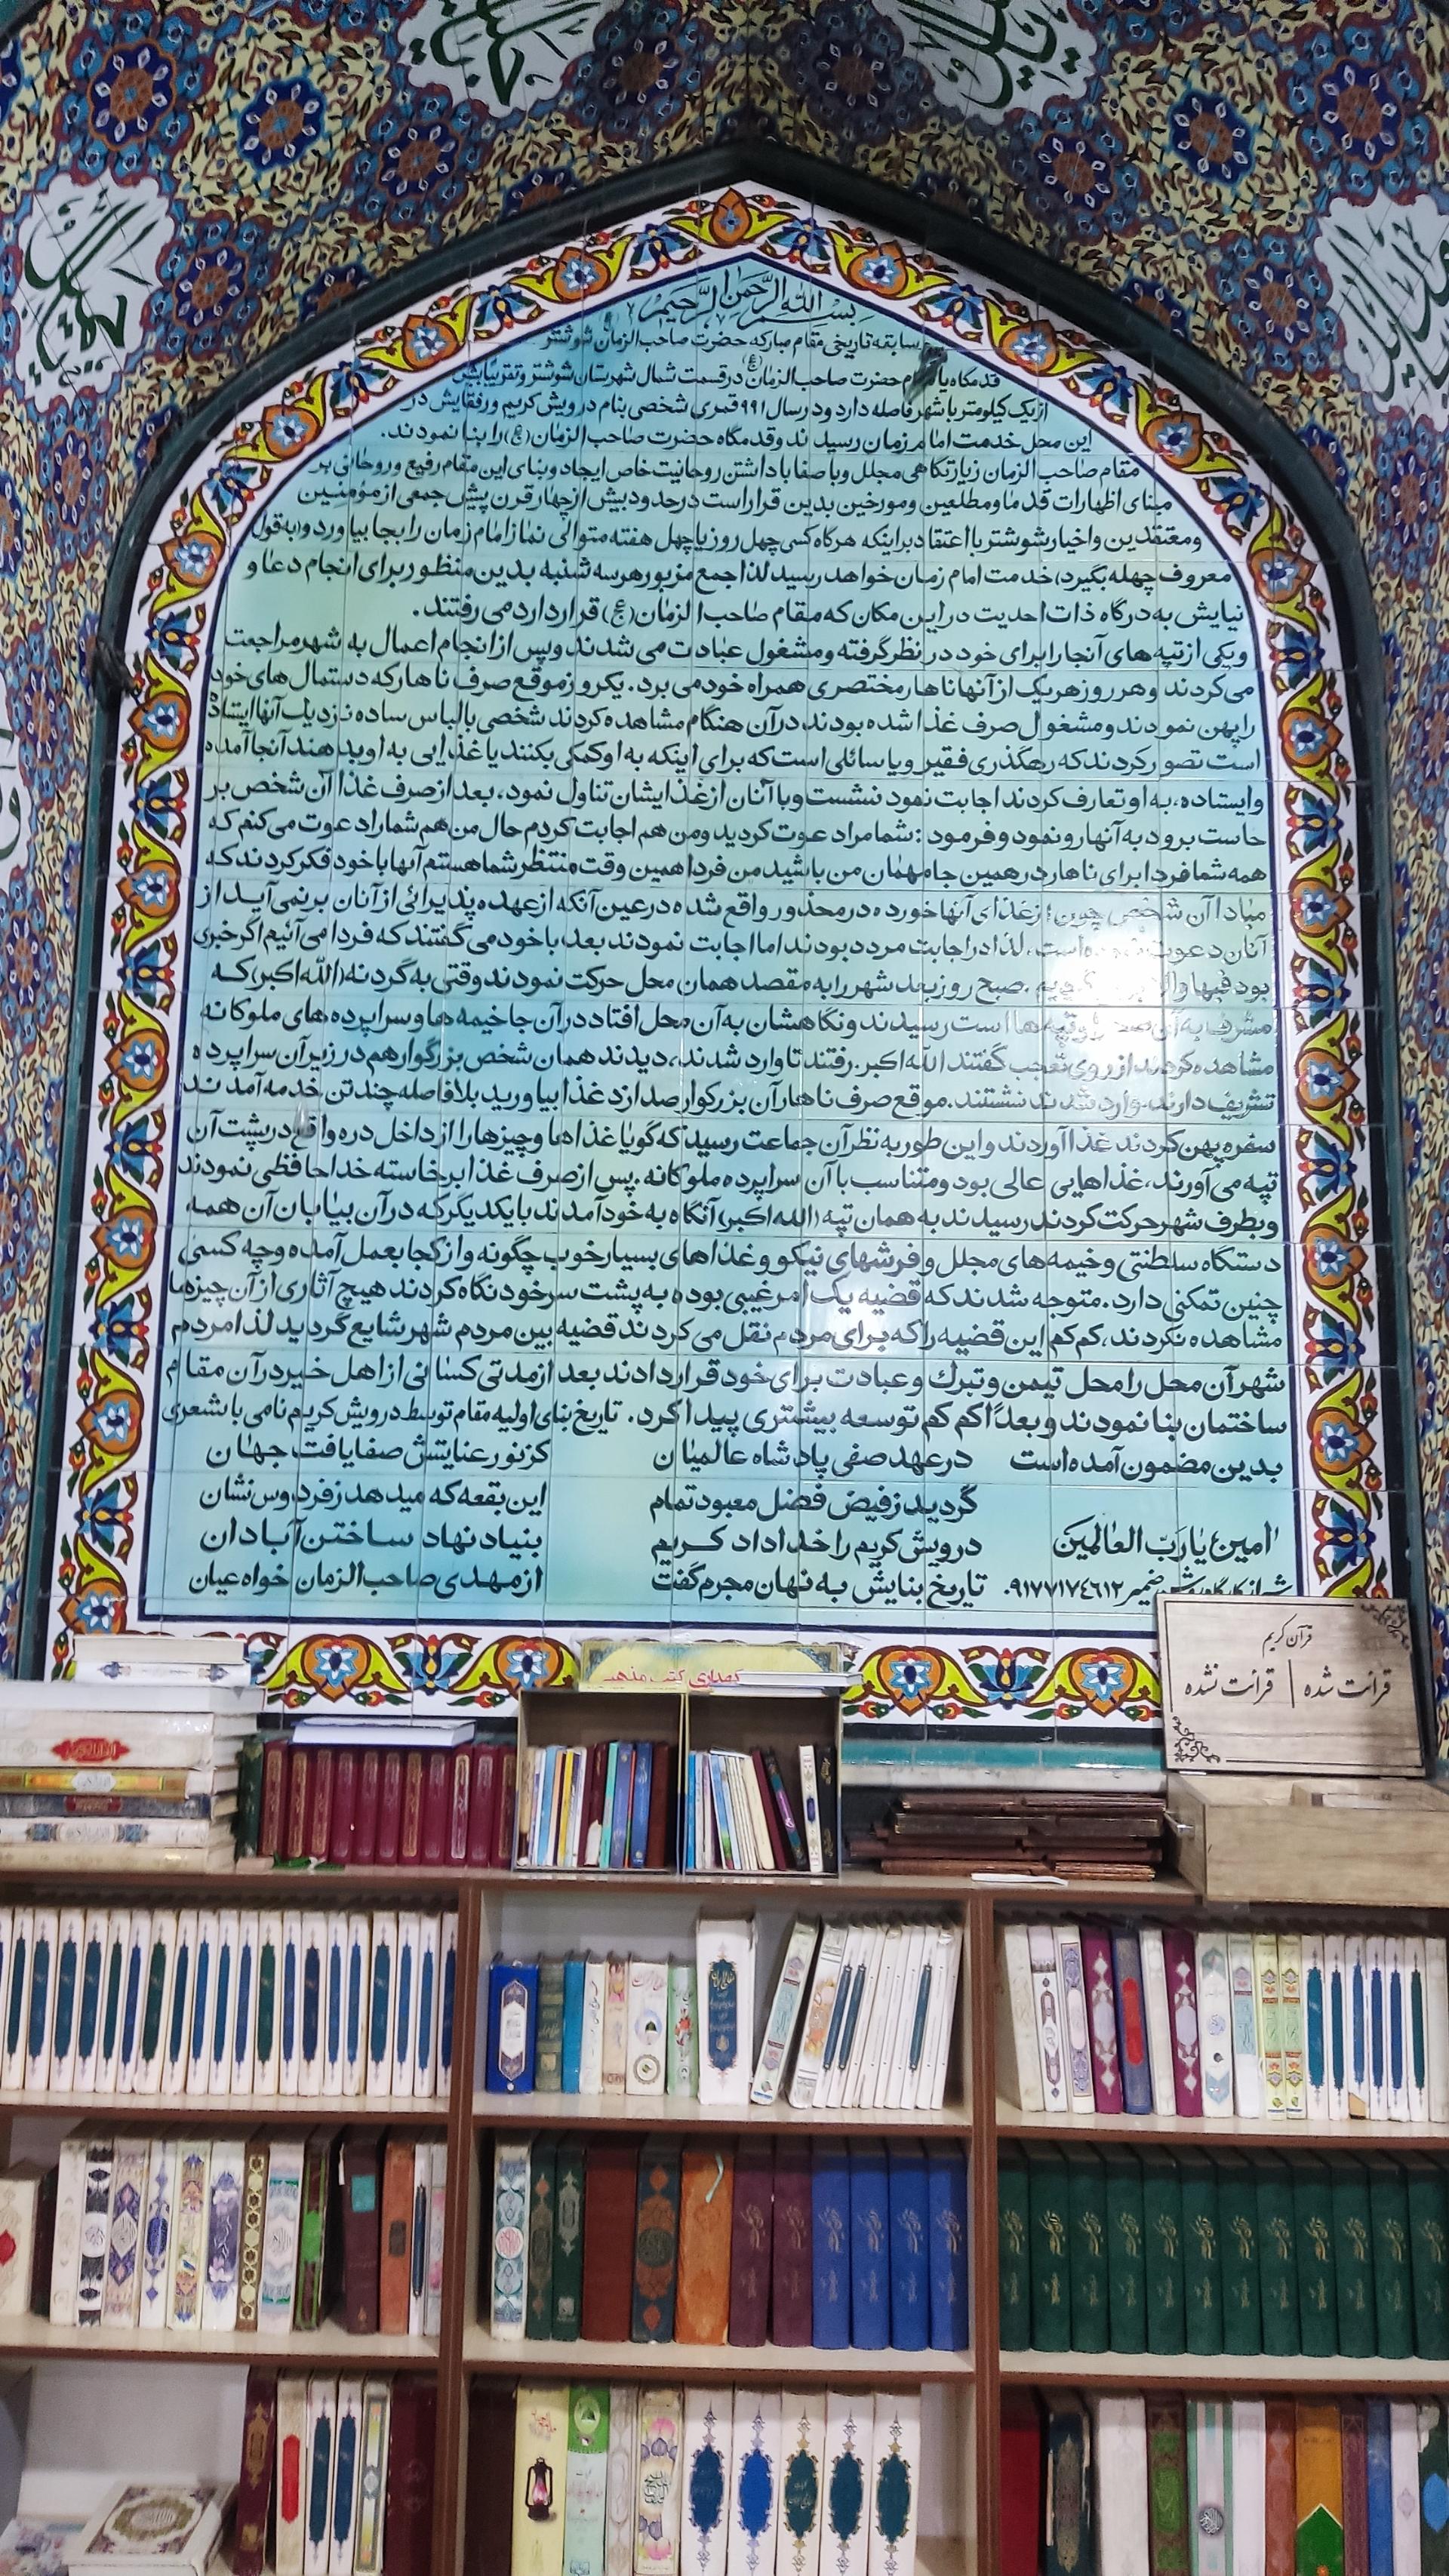 بسم الله الرحمن الرحیم
سابقه تاریخی مقام مبارکه حضرت صاحب الزمان شوشتر
قدمگاه یا مقام حضرت صاحب الزمان (ع) در قسمت شمال شهرستان شوشتر و تقریبا بیش
از یک کیلومتر با شهر فاصله دارد و در سال ۹۹۱ قمری شخصی بنام درویش کریم و رفقایش در
این محل خدمت امام زمان رسیدند و قدمگاه حضرت صاحب الزمان (ع) را بنا نمودند.
مقام صاحب الزمان زیارتگاهی مجلل و با صفا با داشتن روحانیت خاص ایجاد و بنای این مقام رفیع و روحانی بر
مبنای اظهارات قدما و مطلعین و مورخین بدین قرار است در حدود بیش از چهار قرن پیش جمعی از مؤمنین
و معتقدین و اخیار شوشتر با اعتقاد بر اینکه هرگاه کسی چهل روز یا چهل هفته متوالی نماز امام زمان را بجا بیاورد و (به قول
معروف چهله بگیرد) خدمت امام زمان خواهد رسید لذا جمع مزبور هر سه شنبه بدین منظور برای انجام دعا و
نیایش به درگاه ذات احدیت در این مکان که مقام صاحب الزمان (عج) قرار دارد می رفتند.
و یکی از تپه های آنجا را برای خود در نظر گرفته و مشغول عبادت می شدند و پس از انجام اعمال به شهر مراجعت
می کردند و هر روز هر یک از آنها ناهار مختصری همراه خود می برد. یکروز موقع صرف ناهار که دستمال های خود
را پهن نمودند و مشغول صرف غذا شده بودند، در آن هنگام مشاهده کردند شخصی با لباس ساده نزدیک آنها ایستاده
است تصور کردند که رهگذری فقیر و یا سائلی است که برای اینکه به او کمکی بکنند یا غذایی به او بدهند آنجا آمده
و ایستاده، به او تعارف کردند اجابت نمود ننشست و با آنان از غذایشان تناول نمود، بعد از صرف غذا آن شخص بر
خاست برود به آنها رو نمود و فرمود: شما مرا دعوت کردید و من هم اجابت کردم حال من هم شما را دعوت می کنم که
همه شما فردا برای ناهار در همین جا مهمان من باشید من فردا همین وقت منتظر شما هستم آنها با خود فکر کردند که
مبادا آن شخص چون از غذای آنها خورده در محذور واقع شده در عین آنکه از عهده پذیرائی از آنان بر نمی آید از
آنان دعوت است، لذا در اجابت مردد بودند اما اجابت نمودند بعد با خود می گفتند که فردا می آئیم اگر خبری
بود فبها .صبح روز بعد شهر را به مقصد همان محل حرکت نمودند وقتی به گردنه (الله اکبر) که
مشرف به آن و تپه ها است رسیدند و نگاهشان به آن محل افتاد در آن جا خیمه ها و سراپرده های ملوکانه
مشاهده کردند از روی تعجب گفتند الله اکبر. رفتند تا وارد شدند، دیدند همان شخص بزرگوار هم در زیر آن سراپرده
تشریف دارند، وارد شدند نشستند. موقع صرف ناهار آن بزرگوار صدا زد غذا بیاورید بلافاصله چند تن خدمه آمدند
سفره پهن کردند غذا آوردند و این طور به نظر آن جماعت رسید که گویا غذاها و چیزها را از داخل دره واقع در پشت آن
تپه می آورند، غذاهایی عالی بود و متناسب با آن سراپرده ملوکانه. پس از صرف غذا برخاسته خداحافظی نمودند
و بطرف شهر حرکت کردند رسیدند به همان تپه (الله اکبر) آنگاه به خود آمدند با یکدیگر که در آن بیابان آن همه،
دستگاه سلطنتی و خیمه های مجلل و فرشهای نیکو و غذاهای بسیار خوب چگونه و از کجا بعمل آمده و چه کسی
چنین تمکنی دارد. متوجه شدند که قضیه یک امر غیبی بوده به پشت سر خود نگاه کردند هیچ آثاری از آن چیزها
مشاهده نکردند، کم کم این قضیه را که برای مردم نقل می کردند قضیه بین مردم شهر شایع گردید لذا مردم
شهر آن محل را محل تیمن و تبرک و عبادت برای خود قرار دادند بعد از مدتی کسانی از اهل خیر در آن مقام
ساختمان بنا نمودند و بعداً کم کم توسعه بیشتری پیدا کرد. تاریخ بنای اولیه مقام توسط درویش کریم نامی با شعری
بدین مضمون آمده است در عهد صفی پادشاه عالمیان کز نور عنایتش صفا یافت جهان
گردید ز فیض فضل معبود تمام این بقعه که میدهد ز فردوس نشان
امین یا رَبّ العالمین درویش کریم را خدا داد کریم بنیاد نهاد ساختن آبادان
ضمیر ۰۹۱۷۷۱۷٤٦۱۲ تاریخ بنایش به نهان مجرم گفت از مهدی صاحب الزمان خواه عیان
قرآن کریم
قرائت شده | قرائت نشده
اهدای کتب مذهبی